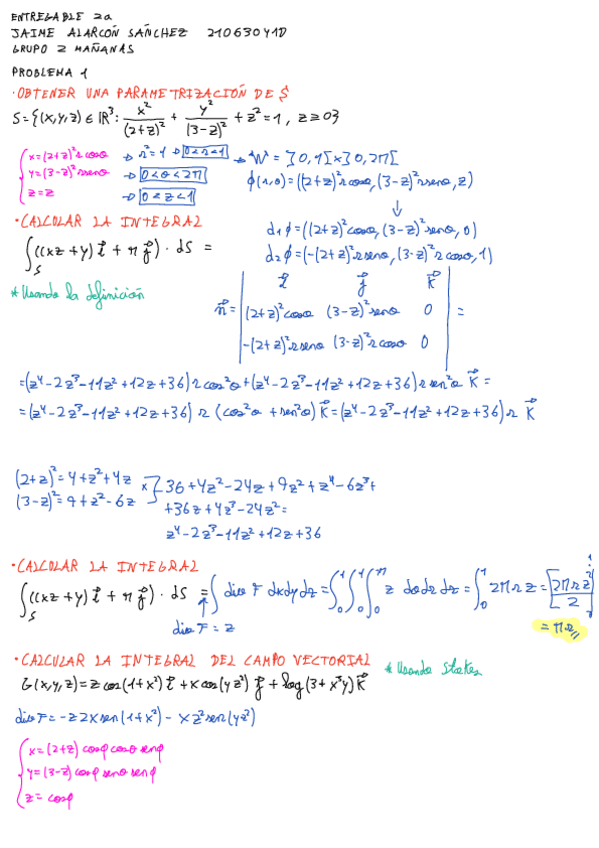 ENTREGABLE 2a
JAIME ALARCÓN SÁNCHEZ 21063041D
GRUPO 2 MAÑANAS
PROBLEMA 1
· OBTENER UNA PARAMETRIZACIÓN DE S
S = {(x,y,z) ∈ ℝ³: x²/(2+z)² + y²/(3-z)² + z² = 1, z ≥ 0}
x = (2+z)² r cosθ → r² = 1 → 0<r<1 → "W" = ]0,1[ x ]0,2π[
y = (3-z)² r senθ → 0<θ<2π ϕ(r,θ) = ((2+z)² r cosθ, (3-z)² r senθ, z)
z = z → 0<z<1
· CALCOLAR LA INTEGRAL
d₁ϕ = ((2+z)² cosθ, (3-z)² senθ, 0)
∫_S ((xz+y) i + π j) · dS =
d₂ϕ = (-(2+z)² r senθ, (3-z)² r cosθ, 1)
* Usando la definición
i j k
n = (2+z)² cosθ (3-z)² senθ 0 =
-(2+z)² r senθ (3-z)² r cosθ 0
= (z⁴-2z³-11z²+12z+36) r cos²θ + (z⁴-2z³-11z²+12z+36) r sen²θ k =
= (z⁴-2z³-11z²+12z+36) r (cos²θ + sen²θ) k = (z⁴-2z³-11z²+12z+36) r k
(2+z)² = 4+z²+4z
(3-z)² = 9+z²-6z
x 36+4z²-24z+9z²+z⁴-6z³+
+36z+4z³-24z² =
z⁴-2z³-11z²+12z+36
· CALCOLAR LA INTEGRAL
∫_S ((xz+y) i + π j) · dS = ∫ div F dxdydz = ∫₀¹ ∫₀¹ ∫₀^π z dθ dr dz = ∫₀¹ 2πrz = [2πrz²/2]
div F = z
= πr
· CALCULAR LA INTEGRAL DEL CAMPO VECTORIAL * Usando Stokes
G(x,y,z) = z cos(1+x²) i + x cos(yz²) j + log(3+x³y) k
div F = -z2x sen(1+x²) - xz² sen(yz²)
x = (2+z) cosφ cosθ senφ
y = (3-z) cosφ senθ senφ
z = cosφ